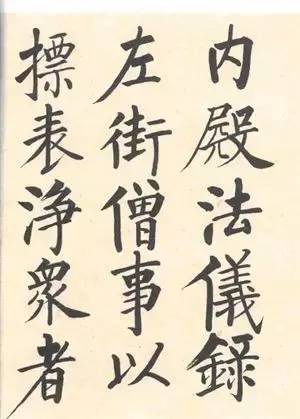 內殿法儀録
左街僧事以
標表浄衆者